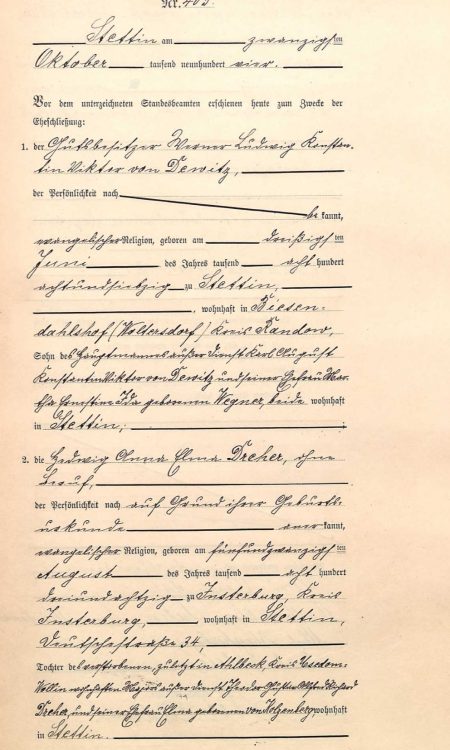 Nr. 405.
Stettin am zwanzigsten
Oktober tausend neunhundert vier.
Vor dem unterzeichneten Standesbeamten erschienen heute zum Zwecke der
Eheschließung:
1. der Gutsbesitzer Werner Ludwig Konstan-
tin Viktor von Dewitz,
der Persönlichkeit nach
be kannt,
evangelischer Religion, geboren am dreißigsten
Juni des Jahres tausend acht hundert
achtundsiebzig zu Stettin,
, wohnhaft in Biesen-
dahlshof (Woltersdorf) Kreis Randow,
Sohn des Hauptmanns außer Dienst Karl August
Konstantin Viktor von Dewitz und seiner Ehefrau Mar-
tha Ernestine Ida geborenen Wegner, beide wohnhaft
in Stettin;
2. die Hedwig Anna Elma Dreher, ohne
Beruf,
der Persönlichkeit nach auf Grund ihrer Geburts-
urkunde aner kannt,
evangelischer Religion, geboren am fünfundzwanzigsten
August des Jahres tausend acht hundert
dreiundachtzig zu Insterburg, Kreis
Insterburg, wohnhaft in Stettin,
Deutschestraße 34,
Tochter des verstorbenen, zuletzt in Ahlbeck Kreis Usedom-
Wollin wohnhaften Majors außer Dienst Theodor Gustav Richard
Dreher, und seiner Ehefrau Elma geborenen von Holzenberg wohnhaft
in Stettin.